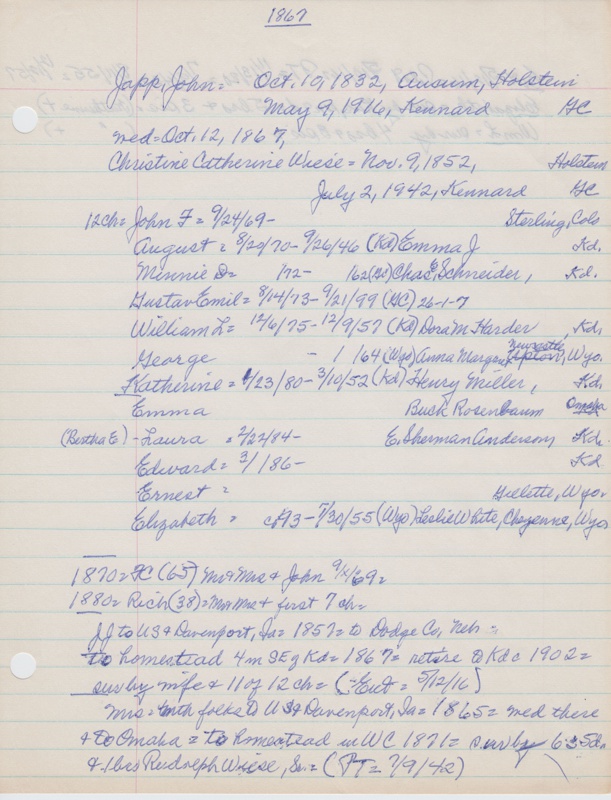 1867
Japp, John = Oct. 10, 1832, Ausum, Holstein
May 9, 1916, Kennard GC
wed = Oct. 12, 1867,
Christine Catherine Wiese = Nov. 9, 1852, Holstein
July 2, 1942, Kennard GC
12 ch = John F = 9/24/69 - Sterling, Colo
August = 8/20/70 - 9/26/46 (Kd) Emma J Kd.
Minnie D = /72 - /62 Chas E Schneider, Kd.
Gustav Emil = 8/14/73 - 9/21/99 (GC) 26-1-7
William L = 12/6/75 - 12/9/57 (Kd) Dora M Harder, Kd,
George - / /64 (Wyo) Anna Margaret Newcastle, Wyo.
Katherine = 1/23/80 - 3/10/52 (Kd) Henry Miller, Kd,
Emma Buck Rosenbaum Omaha
(Bertha E) - Laura = 2/22/84 - E. Sherman Anderson Kd.
Edward = 3/ /86 - Kd.
Ernest = Gillette, Wyo.
Elizabeth = c93 - 7/30/55 (Wyo) Leslie White, Cheyenne, Wyo
1870 = FC (65) Mr & Mrs & John 9/ /69 =
1880 = Rich (38) = Mr & Mrs & first 7 ch =
JJ to US & Davenport, Ia = 1857 = to Dodge Co, Neb =
to homestead 4 m SE of Kd = 1867 = retire to Kd c 1902 =
surv by wife & 11 of 12 ch = (= Ent = 5/12/16)
Mrs = with folks to US & Davenport, Ia = 1865 = wed there
& to Omaha = to homestead in WC 1871 = surv by 6 s 5 da
& 1 bro Rudolph Wiese, Sr. = (PT = 7/9/42)